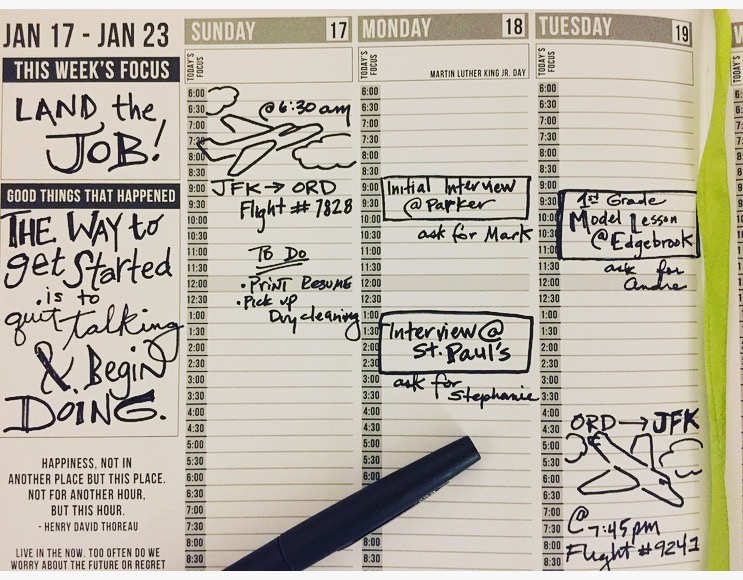 JAN 17 - JAN 23
THIS WEEK'S FOCUS
LAND the
JOB!
GOOD THINGS THAT HAPPENED
THE WAY to
get Started
is to
quit talking
& Begin
DOING.
HAPPINESS, NOT IN
ANOTHER PLACE BUT THIS PLACE.
NOT FOR ANOTHER HOUR,
BUT THIS HOUR.
- HENRY DAVID THOREAU
LIVE IN THE NOW. TOO OFTEN DO WE
WORRY ABOUT THE FUTURE OR REGRET
SUNDAY 17
TODAY'S
FOCUS
6:00
6:30
7:00
7:30
8:00
8:30
9:00
9:30
10:00
10:30
11:00
11:30
12:00
12:30
1:00
1:30
2:00
2:30
3:00
3:30
4:00
4:30
5:00
5:30
6:00
6:30
7:00
7:30
8:00
8:30
@ 6:30 am
JFK → ORD
Flight # 7828
To Do
• Print Resume
• Pick up
Dry cleaning
MONDAY 18
TODAY'S
FOCUS
MARTIN LUTHER KING JR. DAY
6:00
6:30
7:00
7:30
8:00
8:30
9:00
9:30
10:00
10:30
11:00
11:30
12:00
12:30
1:00
1:30
2:00
2:30
3:00
3:30
4:00
4:30
5:00
8:00
8:30
Initial Interview
@ Parker
ask for Mark
Interview @
St. Paul's
ask for
Stephanie
TUESDAY 19
TODAY'S
FOCUS
6:00
6:30
7:00
7:30
8:00
8:30
9:00
9:30
10:00
10:30
11:00
11:30
12:00
12:30
1:00
1:30
2:00
2:30
3:00
3:30
4:00
4:30
5:00
5:30
6:00
6:30
7:00
7:30
8:00
8:30
1st Grade
Model Lesson
@ Edgebrook
ask for
Andre
ORD → JFK
@ 7:45 pm
Flight # 9241